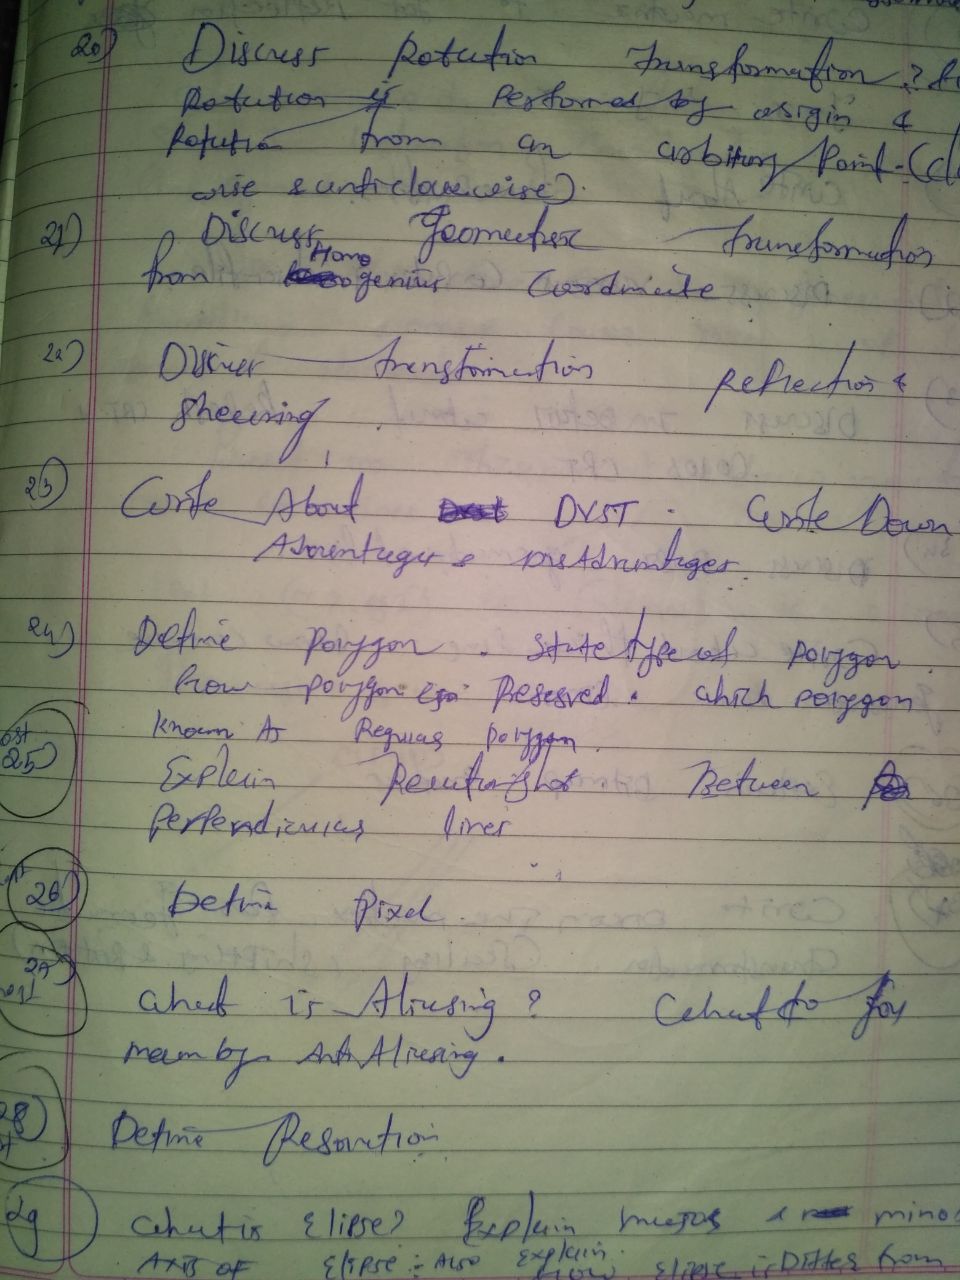 20) Discuss Rotution Trunsformution ?
Rotution if Performed by origin &
Rotution from an arbitury Point (clo
wise & unticlouwise).
21) Discuss Geometric trunsformution
from Homogenius Coordinate
22) Discuss transformution Reflection &
Sheering
23) Write About DVST . Write Down
Adventuges & Disadvuntuges.
24) Define Polygon . State type of polygon
how polygon Preserved . which polygon
known As Regular Polygon .
25) Explain Between
Perpendicular lines
26) Define Pixel .
27) What is Aliusing ? What do You
meun by Anti Aliusing .
28) Define Resolution
29) What is Elipse? Explain &  minor
Axis of Elipse . Also Explain
how Elipse is Differ from